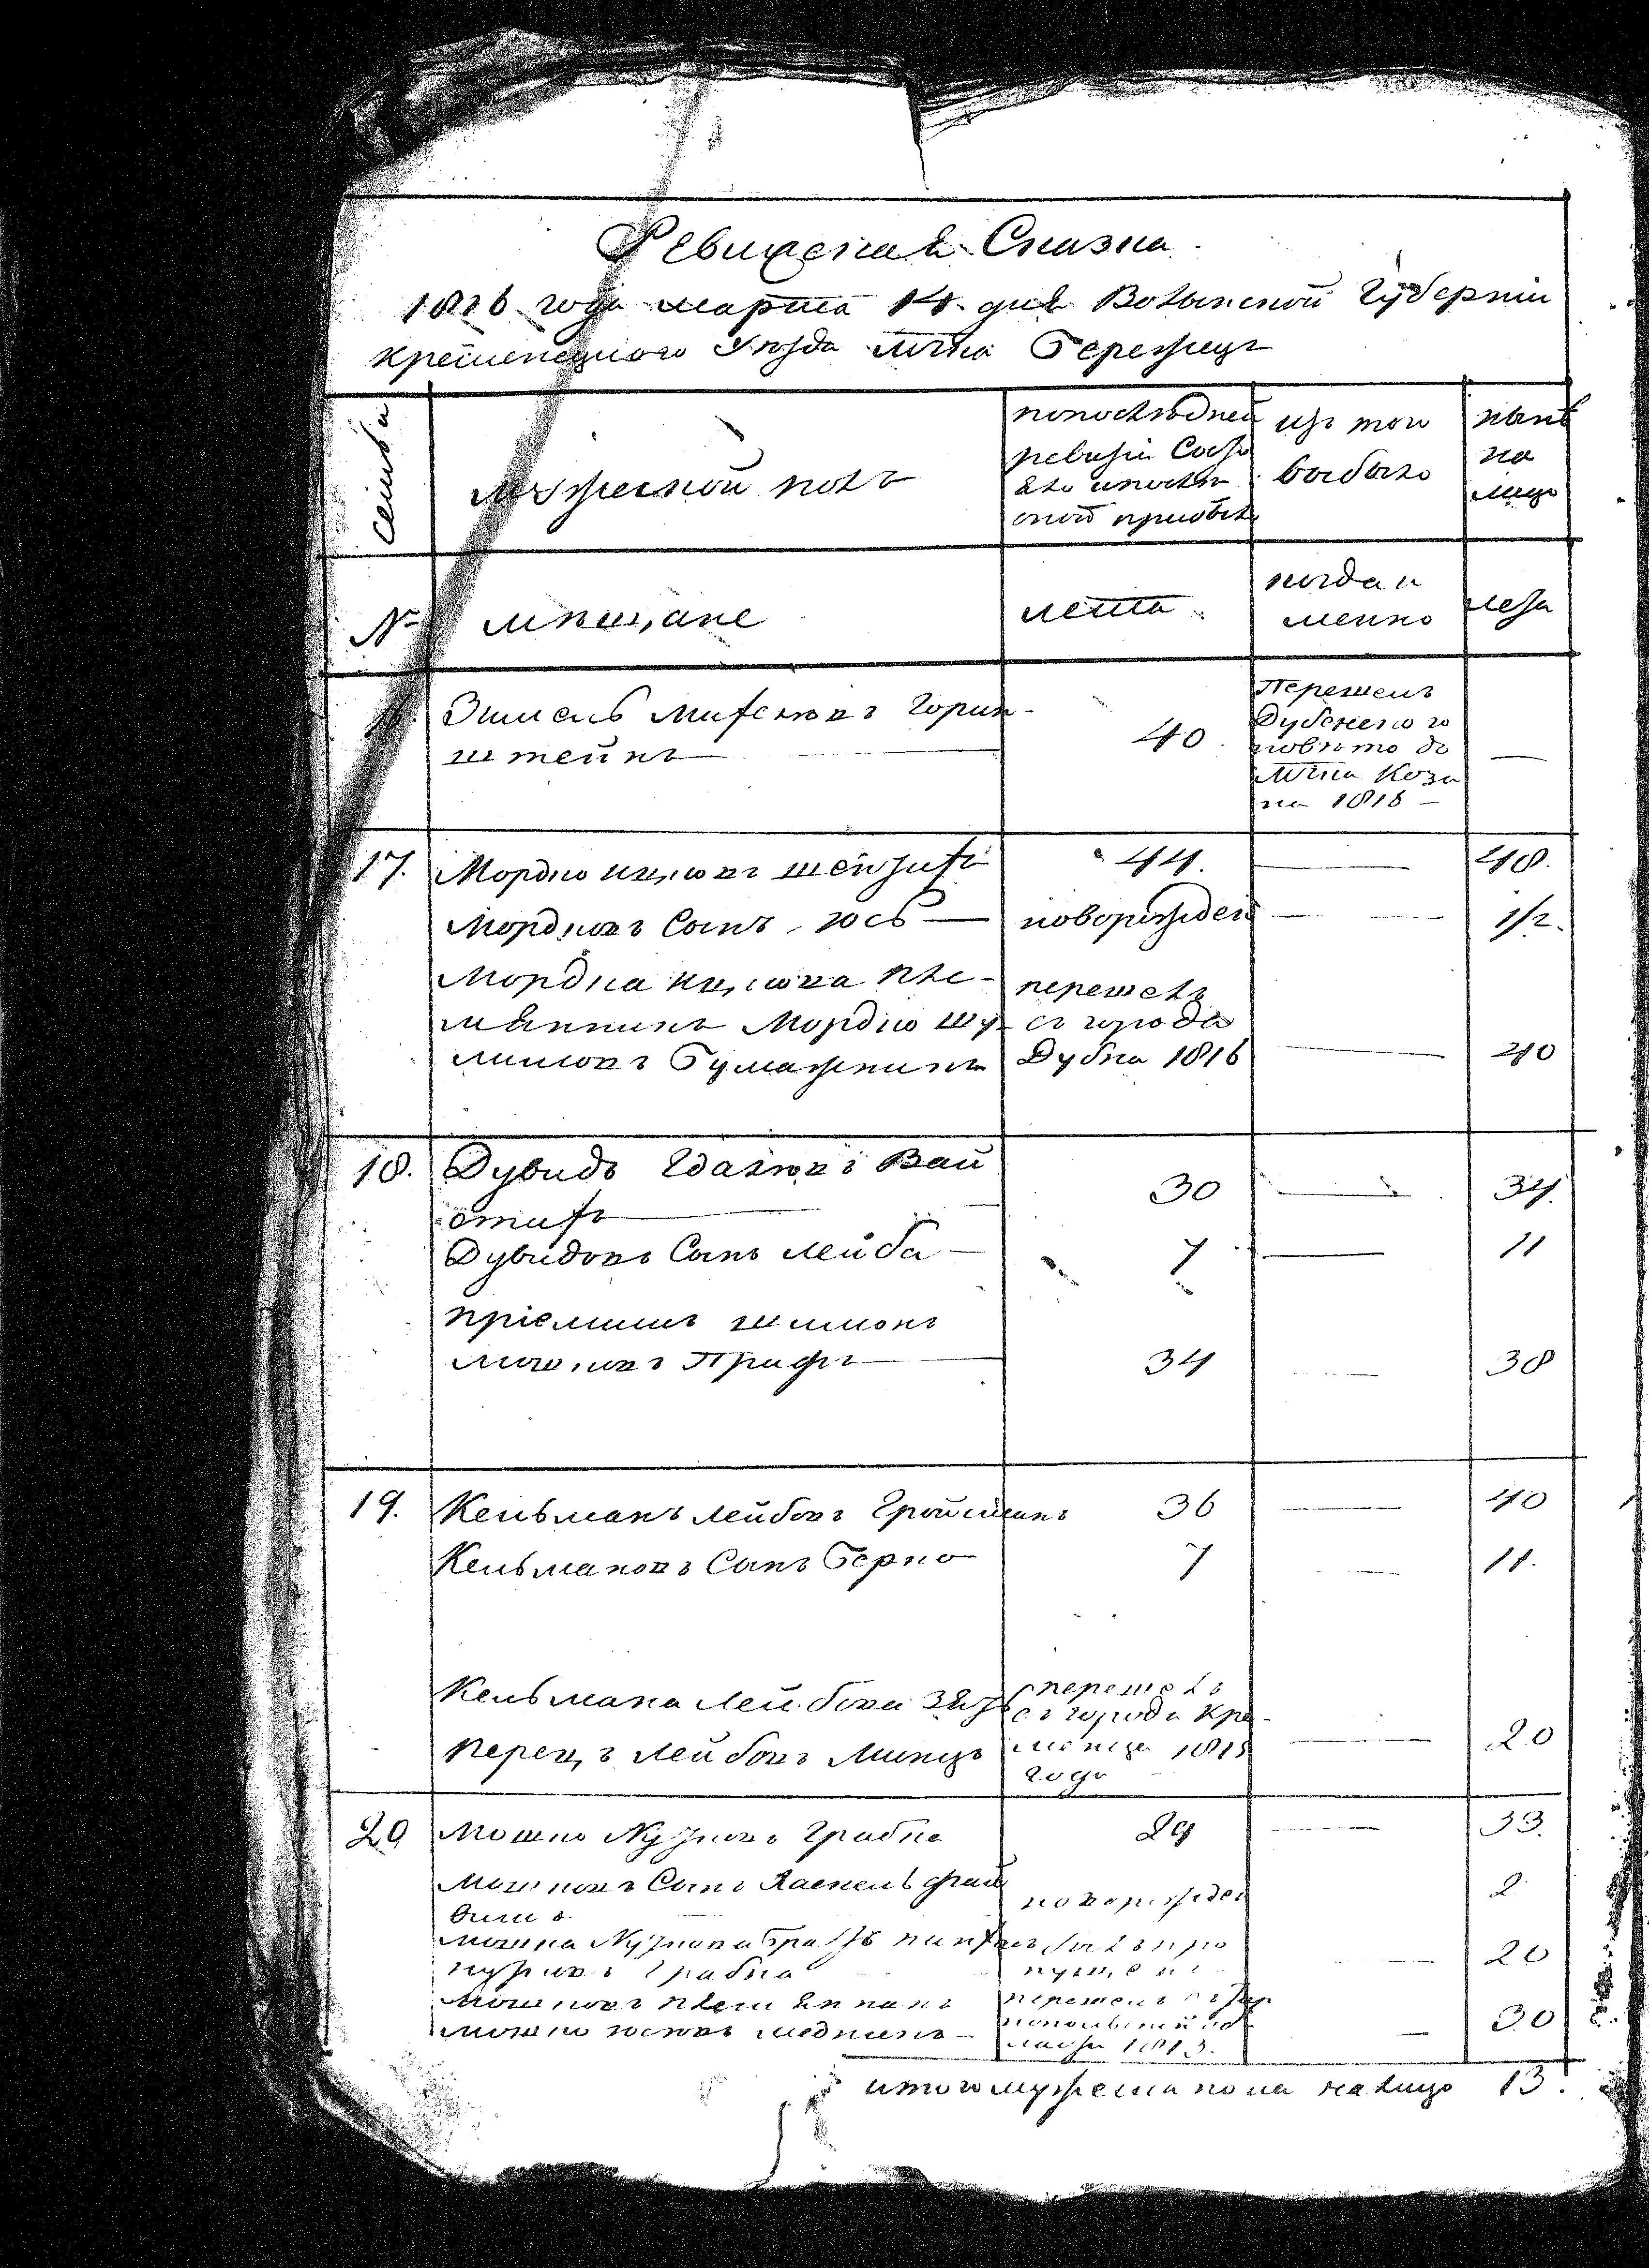 Ревижская Сказка
1816 года марта 14 дня Волынской Губернии
Кременецкого Уезда мтка Бережец
Семьи
мужеской полъ
попоследней
ревизии Состо
яло ипосле
оной прибыло
изъ того
выбыло
ныне
на
лицо
№
мещане
лета
когда и
менно
лета
16.
Эпшель
Горин-
штейнъ
40
Перешелъ
Дубенского
повету до
мтка Кози
на 1816
—
17.
Мордко
44.
48.
Мордковъ Сынъ Юсь
новорожден
1/2.
Мордка пле-
мянникъ Мордко Шу-
лимовъ Бумажникъ
перешелъ
съ города
Дубна 1816
40
18.
Дувидъ Вай
30
34.
Дувидовъ Сынъ Лейба
7
11
пріемишъ Шимонъ
34
38
19.
Кельманъ Лейбовъ Гройсманъ
36
40
Кельмановъ Сынъ Берко
7
11.
Кельмана Лейбова зять
Перец,ъ Лейбовъ Минцъ
перешелъ
съ города Кре-
менца 1815
года
20
20
Мошко Нузновъ Грабна
29
33.
Мошковъ Сынъ
новорожден
2
Мошка Нузнова братъ
20
Мошковъ племянникъ
Мошко Юсювъ Медникъ
1813.
30
итого мужеска пола налицо 13.